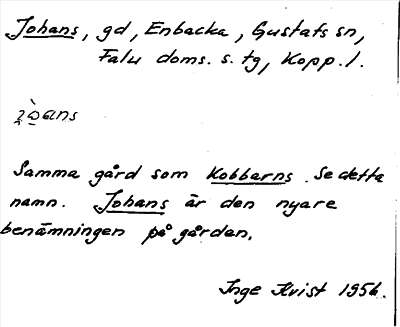 Johans, gd, Enbacka, Gustafs sn,
Falu doms. s. tg, Kopp. l.
Samma gård som Kobbarns. Se detta
namn. Johans är den nyare
benämningen på gården.
Inge Kvist 1956.